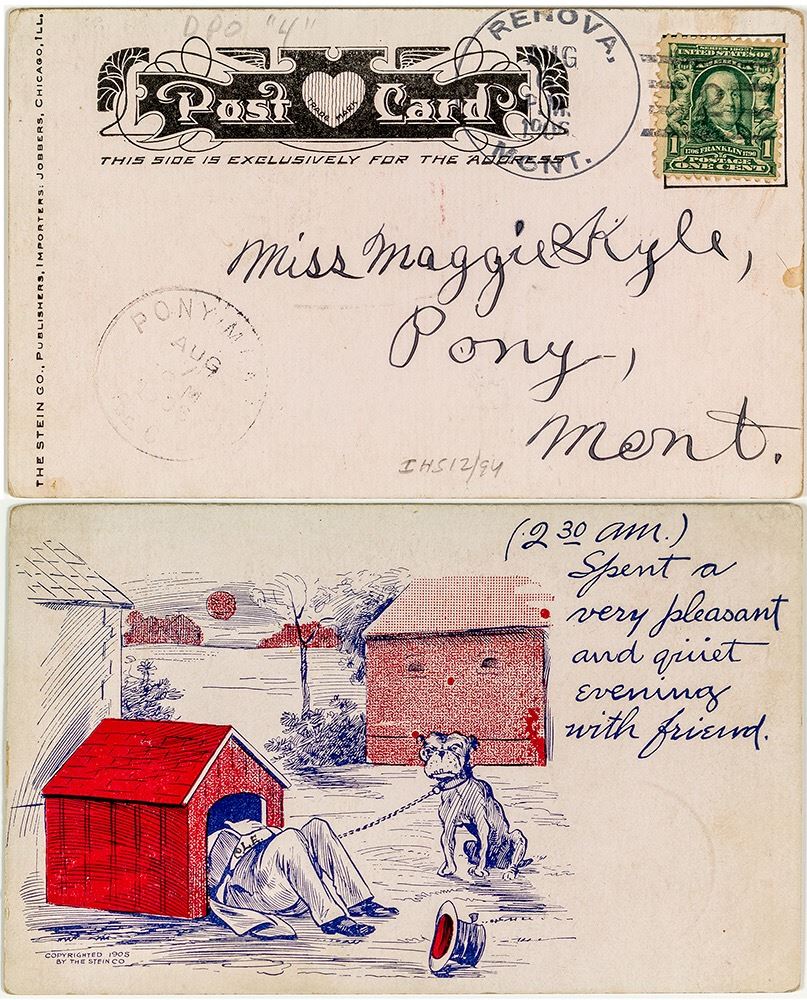 DPO "4"
THE STEIN CO., PUBLISHERS, IMPORTERS, JOBBERS, CHICAGO, ILL.
Post Card
TRADE MARK
THIS SIDE IS EXCLUSIVELY FOR THE ADDRESS
RENOVA,
AUG
MONT.
SERIES 1902
UNITED STATES OF
1 1706 FRANKLIN 1790 1
POSTAGE
ONE CENT
Miss Maggie Kyle,
Pony,
Mont.
PONY
AUG
IHS12/94
(2 30 am.)
Spent a
very pleasant
and quiet
evening
with friend.
COPYRIGHTED 1905
BY THE STEIN CO